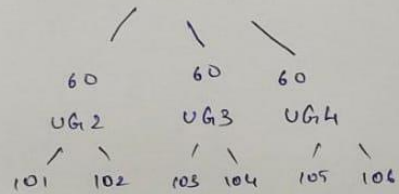 60 60 60
UG2 UG3 UG4
101 102 103 104 105 106